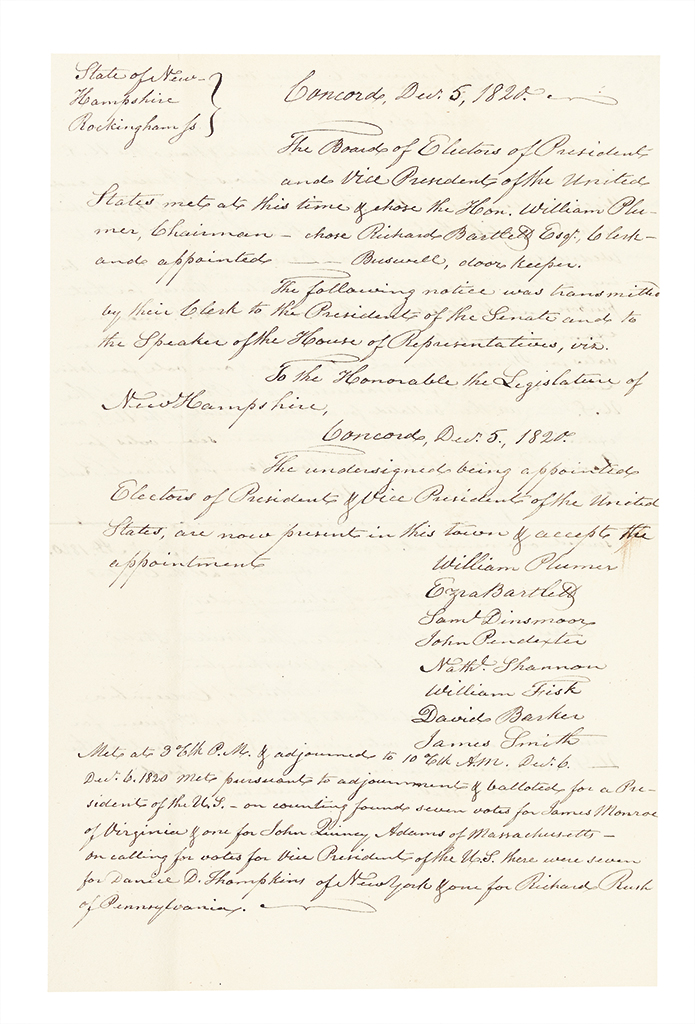 State of New-
Hampshire
Rockingham ss
Concord, Decr. 5, 1820.
The Board of Electors of President
and Vice President of the United
States met at this time & chose the Hon. William Plu-
mer, Chairman – chose Richard Bartlett Esqr. Clerk –
and appointed —— Buswell, door keeper.
The following notice was transmitted
by their Clerk to the President of the Senate and to
the Speaker of the House of Representatives, viz.
To the Honorable the Legislature of
New Hampshire,
Concord, Decr. 5, 1820.
The undersigned being appointed
Electors of President & Vice President of the United
States, are now present in this town & accept the
appointment
William Plumer
Ezra Bartlett
Saml. Dinsmoor
John Pendexter
Nathl. Shannon
William Fisk
David Barker
James Smith
Met at 3 oClk P.M. & adjourned to 10 oClk A.M. Decr. 6. —
Decr. 6. 1820 met pursuant to adjournment & balloted for a Pre-
sident of the U.S. – on counting found seven votes for James Monroe
of Virginia & one for John Quincy Adams of Massachusetts –
on calling for votes for Vice President of the U.S. there were seven
for Daniel D. Thompkins of New York & one for Richard Rush
of Pennsylvania.